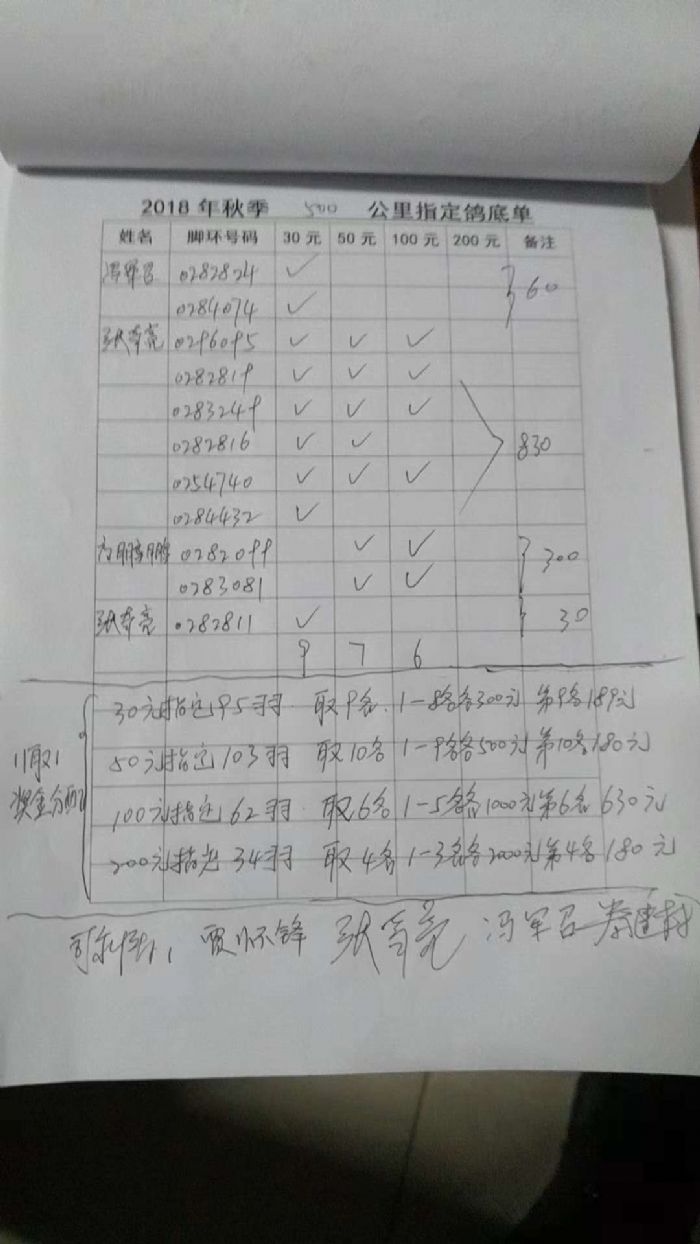 2018 年秋季 500 公里指定鸽底单
姓名 脚环号码 30 元 50 元 100 元 200 元 备注
冯军召 0282824 ✓ 60
0284074 ✓
张奇亮 0296095 ✓ ✓ ✓
0282819 ✓ ✓ ✓
0283249 ✓ ✓ ✓
0282816 ✓ ✓ 830
0254740 ✓ ✓ ✓
0284432 ✓
鹏鹏 0282099 ✓ ✓ 300
0283081 ✓ ✓
张奇亮 0282811 ✓ 30
9 7 6
30元指定95羽 取9名 1-8名各300元 第9名189元
50元指定103羽 取10名 1-9名各500元 第10名180元
11取1
奖金分配
100元指定62羽 取6名 1-5名各1000元 第6名630元
200元指定34羽 取4名 1-3名各2000元 第4名180元
贾怀锋 张奇亮 冯军召